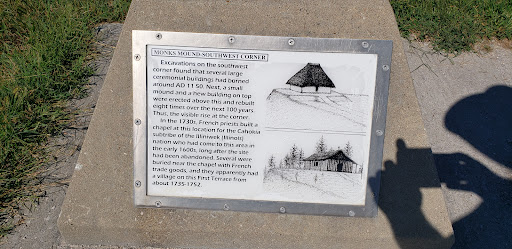 MONKS MOUND-SOUTHWEST CORNER
Excavations on the southwest
corner found that several large
ceremonial buildings had burned
around AD 1150. Next, a small
mound and a new building on top
were erected above this and rebuilt
eight times over the next 100 years.
Thus, the visible rise at the corner.
In the 1730s, French priests built a
chapel at this location for the Cahokia
subtribe of the Illiniwek (Illinois)
nation who had come to this area in
the early 1600s, long after the site
had been abandoned. Several were
buried near the chapel with French
trade goods, and they apparently had
a village on this First Terrace from
about 1735-1752.